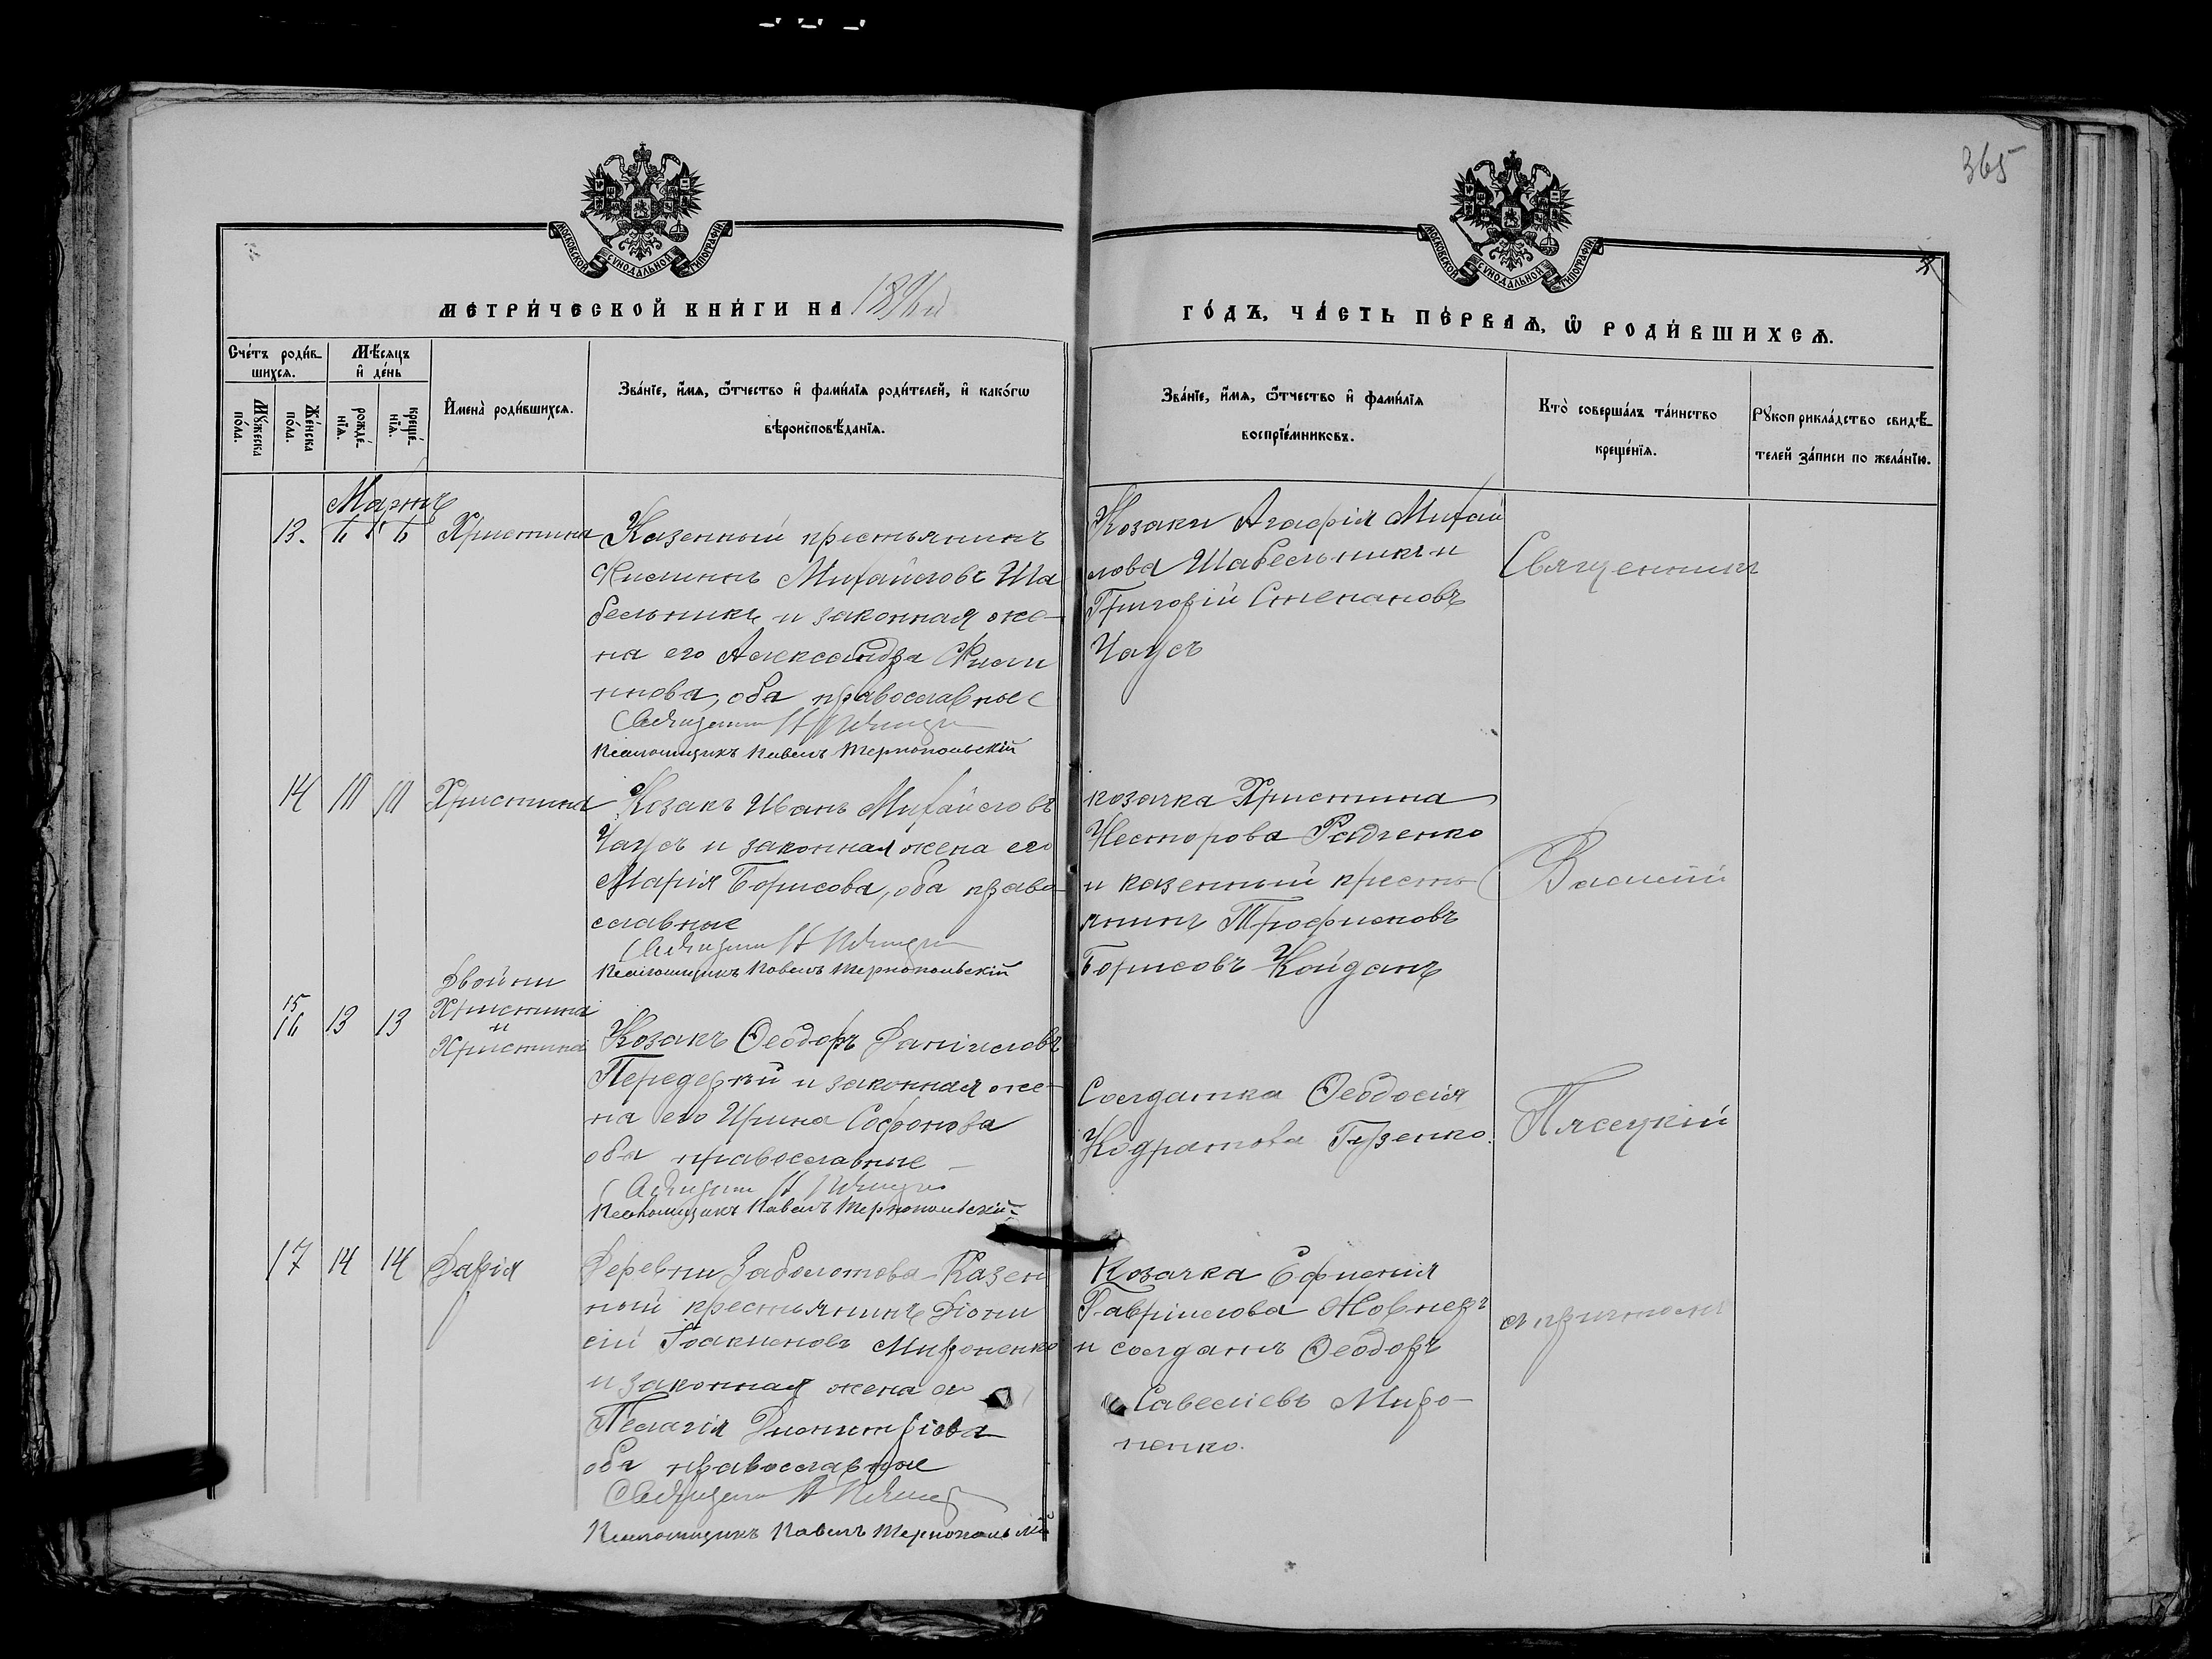 365
МОСКОВСКОЙ СѴНОДАЛЬНОЙ ТИПОГРАФІИ
МОСКОВСКОЙ СѴНОДАЛЬНОЙ ТИПОГРАФІИ
МЕТРИ́ЧЕСКОЙ КНИ́ГИ НА 1896й
ГО́ДЪ, ЧА́СТЬ ПЕ́РВАѦ, Ѡ҆ РОДИ́ВШИХСѦ.
Сче́тъ роди́в-
шихсѧ.
Мꙋ́жеска
по́ла.
Же́нска
по́ла.
Мѣ́сяцъ
и҆ де́нь
рожде́-
нїѧ.
креще́-
нїѧ.
И҆мена̀ роди́вшихсѧ.
Зва́нїе, и҆́мѧ, ѻ҆́тчество и҆ фами́лїѧ роди́телей, и҆ како́гѡ
вѣроисповѣ́данїѧ.
Зва́нїе, и҆́мѧ, ѻ҆́тчество и҆ фами́лїѧ
воспрїе́мниковъ.
Кто̀ соверша́лъ та́инство
креще́нїѧ.
Рꙋкоприкла́дство свидѣ́-
телей за́писи по жела́нїю.
Мартъ
13. 6 6 Христина
Казенный крестьянинъ
Филиппъ Михайловъ Ша
бельникъ и законная же-
на его Александра Фили
ппова, оба православные
Священникъ
Псаломщикъ Павелъ Тернопольскій
Козаки Агафія Михай
лова Шабельникъ и
Григорій Степановъ
Чаусъ
Священникъ
14 10 10 Христина
Козакъ Иванъ Михайловъ
Чаусъ и законная жена его
Марія Борисова, оба право-
славные
Священникъ
Псаломщикъ Павелъ Тернопольскій
козачка Христина
Несторова Радченко
и казенный кресть-
янинъ Трофимовъ
Борисовъ Койданъ
Василій
Двойни
15
16 13 13 Христина
и
Христина
Козакъ Ѳеодоръ Даніиловъ
Передерій и законная же-
на его Ирина Софонова
оба православные
Священникъ
Псаломщикъ Павелъ Тернопольскій
Солдатка Ѳеодосія
Кодратова Гузенко.
Пясецкій
17 14 14 Дарія
Деревни Заболотова Казен
ный крестьянинъ Діони
сій Іоакимовъ Мироненко
и законная жена его
Пелагія Димитріева
оба православные
Священникъ
Псаломщикъ Павелъ Тернопольскій
Козачка Ефимія
Гавріилова Жовнеръ
и солдатъ Ѳеодоръ
Савеліевъ Миро-
ненко.
съ причтомъ